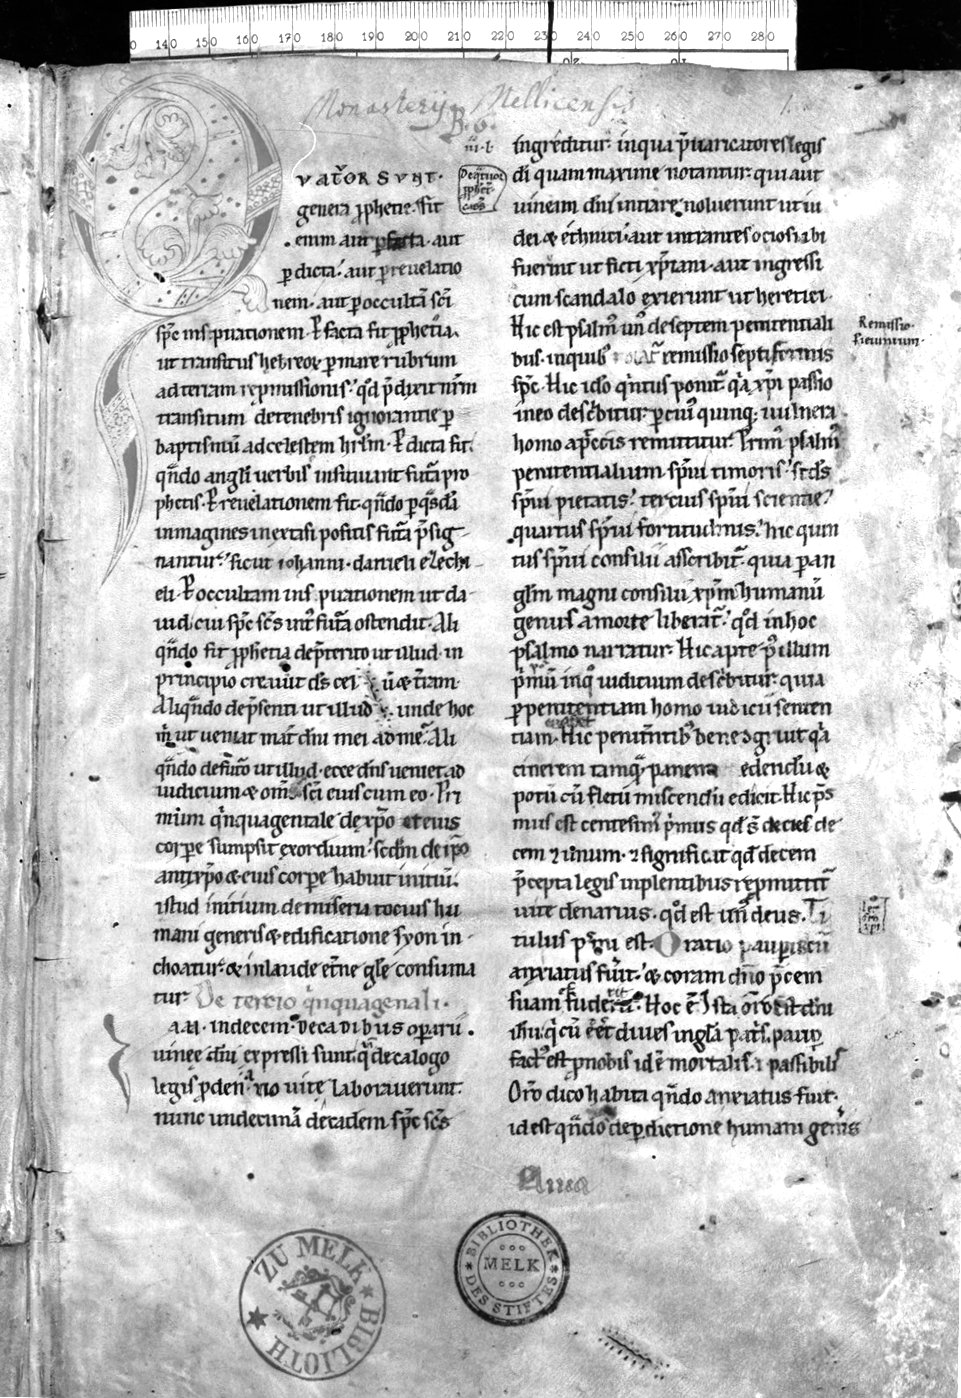 140 150 160 170 180 190 200 210 220 230 240 250 260 270 280
Monasterij Mellicensis
B. 6.
1.
QVATᷣOR SVNT·
genera ꝓphetie. Fit
enim aut ꝑ facta· aut
ꝑ dicta· aut ꝑ reuelatio
nem· aut ꝑ occultā scī
sp̄c inspirationem· P̲ facta fit ꝓphetia.
ut transitus hebreoꝝ ꝑ mare rubrum
ad terram repmissionis· qd̄ p̄dixit nr̄m
transitum de tenebris ignorantie ꝑ
baptismū ad celestem hrl̄m· P̲ dicta fit
qn̄do angli uerbis instituunt futā pro
phetis· P̲ reuelationem fit· qn̄do ꝑ qsdā
inmagines in extasi positis futā p̄sig
nantur· sicut iohanni· danieli ezechi
eli· P̲ occultam inspirationem ut da
uid, cui sp̄c sc̄s int᷑ futā ostendit· Ali
qn̄do fit ꝓphetia de p̄terito ut illud· in
principio creauit ds̄ celū & t̄ram·
Aliqn̄do de p̄senti ut illud· unde hoc
m̄ ut ueniat mat̄ dn̄i mei ad me· Ali
qn̄do de futo ut illud· ecce dn̄s ueniet ad
iudicium & om̄s sc̄i eius cum eo· Pri
mum qinquagentale de xp̄o et eius
corpe sumpsit exordium· scdm̄ de ipo
antixp̄o & eius corpe habuit initiū·
istud initium de miseria tocius hu
mani generis & edificatione syon in
choatur· & in laude et̄ne gl̄e consuma
tur· De tercio qinquagenali·
IAM· in decem· decadibus operarii
uinee dn̄i expressi sunt· q decalogo
legis ꝓ denario uite laborauerunt·
nunc undecimā decadem· sp̄c sc̄s
ingreditur· in qua p̄uaricatores legis
di quam maxime notantur· qui aut
uineam dn̄i intrare noluerunt ut iu
dei & ethnici· aut intrantes ociosi ibi
fuerint ut ficti xp̄iani· aut ingressi
cum scandalo exierunt ut heretici·
Hic est psalmꝰ unꝰ de septem penitentiali
bus· in quibꝰ notat᷑ remissio septiformis
sp̄c· Hic ideo qintus ponit᷑ qa xp̄i passio
in eo desc̄bitur· ꝑ cuiꝰ quinqꝫ uulnera
homo a p̄ccis remittitur· Primꝰ psalmꝰ
penitentialium· sp̄ui timoris· scd̄s
sp̄ui pietatis· tercius sp̄ui scientie·
quartus sp̄ui fortitudinis· hic quin
tus sp̄ui consilii asscribit᷑· quia ꝑ an
glm̄ magni consilii xp̄m humanū
genus a morte liberat᷑· qd̄ in hoc
psalmo narratur· Hic apte pꝰ illum
p̄mū inqꝰ iudicium desc̄bitur· quia
ꝑ penitentiam homo iudicii senten
tiam· Hic penitentibꝰ bene ꝯgruit qa
cinerem tamquā panem edendū &
potū cū fletū miscendū edicit· Hic ps̄
mus est centesimꝰ pimus qd̄ s̄ decies de
cem ⁊ unum· ⁊ significat qd̄ decem
p̄cepta legis inplentibus repmittit᷑
uite denarius· qd̄ est unꝰ deus· Ti
tulus p̄sens est· Oratio pauperis cū
anxiatus fuit· & coram dn̄o p̄cem
suam fuderit· Hoc ē· Ista or̄o est dn̄i
ihu· qi cū eēt diues in glā pat̄s· paup̄
factꝰ est ꝓ nobis id ē mortalis· ⁊ passibilis
Or̄o dico habita qn̄do anxiatus fuit·
id est qn̄do de perdictione humani genīs
Remissio·
ZU MELK
BIBLIOTH
BIBLIOTHEK
MELK
DES STIFTES